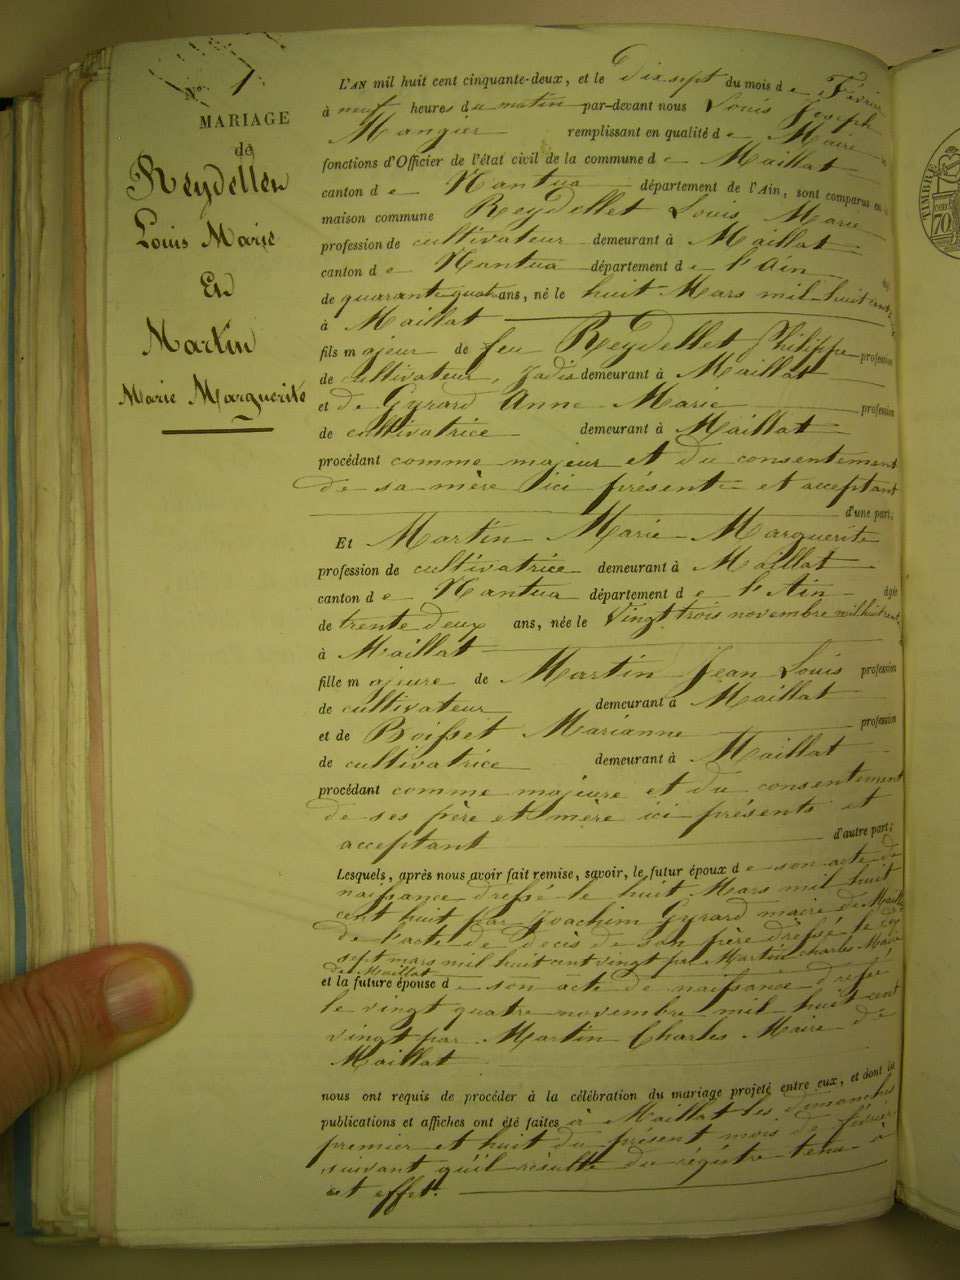 N° 1
MARIAGE
de
Reydellet
Louis Marie
Et
Martin
Marie Marguerite
L'AN mil huit cent cinquante-deux, et le Dix sept du mois de Février
à neuf heures du matin par-devant nous Louis Joseph
Mangier remplissant en qualité de Maire
fonctions d'Officier de l'état civil de la commune de Maillat
canton de Nantua département de l'Ain, sont comparus en
maison commune Reydellet Louis Marie
profession de cultivateur demeurant à Maillat
canton de Nantua département de l'Ain
de quarante quatre ans, né le huit Mars mil huit cent
à Maillat
fils majeur de feu Reydellet Philippe profession
de cultivateur, jadis demeurant à Maillat
et de Gyrard Anne Marie profession
de cultivatrice demeurant à Maillat
procédant comme majeur et du consentement
de sa mère ici présente et acceptant
d'une part;
Et Martin Marie Marguerite
profession de cultivatrice demeurant à Maillat
canton de Nantua département de l'Ain âgée
de trente deux ans, née le Vingt trois novembre mil huit cent
à Maillat
fille majeure de Martin Jean Louis profession
de cultivateur demeurant à Maillat
et de Boisset Marianne profession
de cultivatrice demeurant à Maillat
procédant comme majeure et du consentement
de ses père et mère ici présents et
acceptant d'autre part;
Lesquels, après nous avoir fait remise, savoir, le futur époux de son acte de
naissance dressé le huit Mars mil huit
cent huit par Joachim Gyrard maire de Maillat
de l'acte de décès de son père dressé le
sept mars mil huit cent vingt par Martin Charles Maire
de Maillat
et la future épouse de son acte de naissance dressé
le vingt quatre novembre mil huit cent
vingt par Martin Charles Maire de
Maillat
nous ont requis de procéder à la célébration du mariage projeté entre eux, et dont les
publications et affiches ont été faites à Maillat les dimanches
premier et huit du présent mois de février
suivant qu'il résulte du régistre tenu à
cet effet.
TIMBRE
70